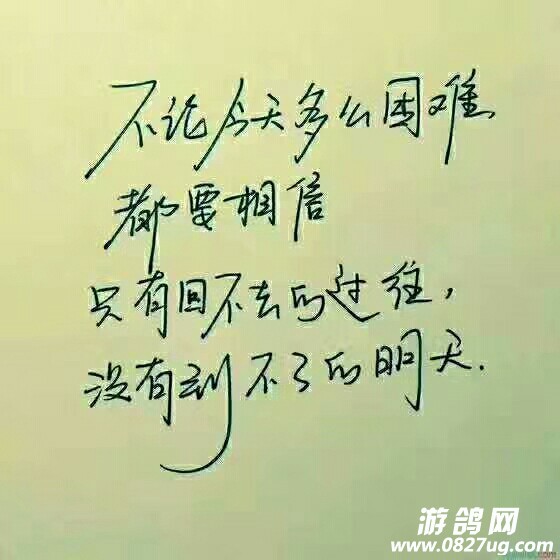 不论今天多么困难
都要相信
只有回不去的过往，
没有到不了的明天.
游鸽网
www.0827ug.com